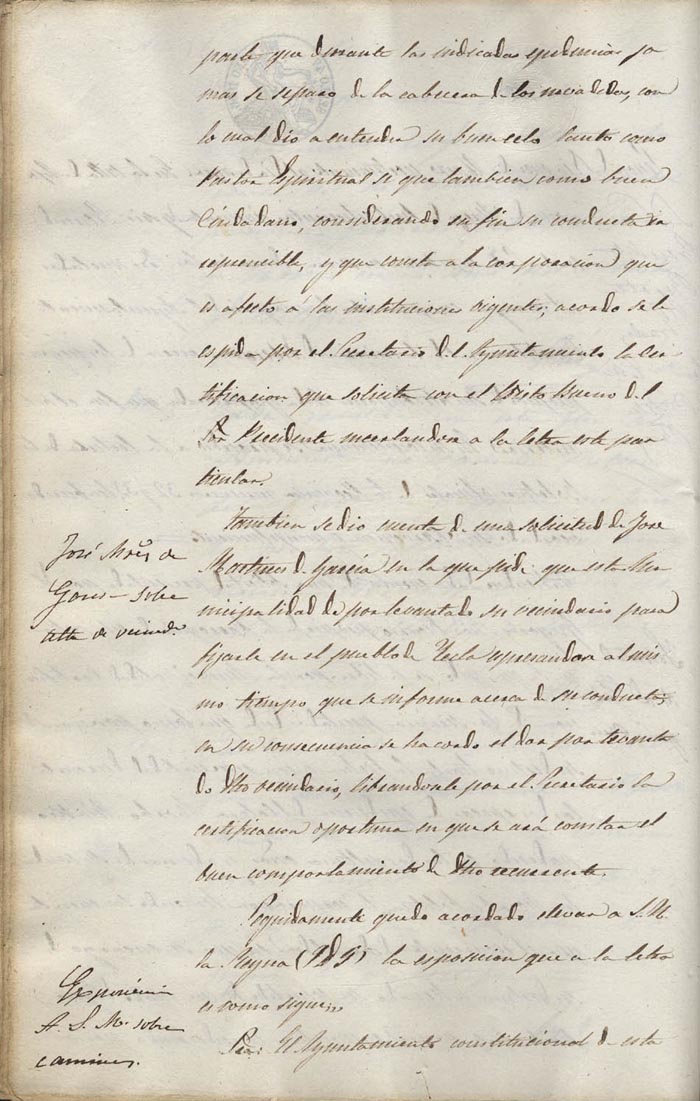 parte que durante las indicadas epidemias ja
mas se separo de la cabecera de los nvadedos, con
lo cual dio a entender su buen celo tanto como
Pastor Espiritual si que tambien como buen
Ciudadano, considerando en fin su conducta ir
reprencible, y que consta a la corporacion que
es afecto á las instituciones vigentes; acordo se le
espida por el Secretario del Ayuntamiento la Cer
tificacion que solicita con el Visto Bueno del
Sor Precidente incertandose a la letra este par
ticular.
Tambien se dio cuenta de una solicitud de Jose
Martines de Garcia en la que pide que esta Mu
nicipalidad de por levantado su vecindario para
fijarle en el pueblo de Yecla espresandose al mis
mo tiempo que se informe acerca de su conducta,
en su consecuencia se ha cordo el dar por levanta
do dho vecindario, librandosele por el Secretario la
certificacion oportuna en que se ará constar el
buen comportamiento de dho recurrente.
José Mrñs de
Garcia - sobre
alta de vecind.
Seguidamente quedo acordado elevar a S. M.
la Reyna (Q D G) la esposicion que a la letra
es como sigue
Esposición
A. S. M. sobre
caminos.
Sra: El Ayuntamiento constitucional de esta